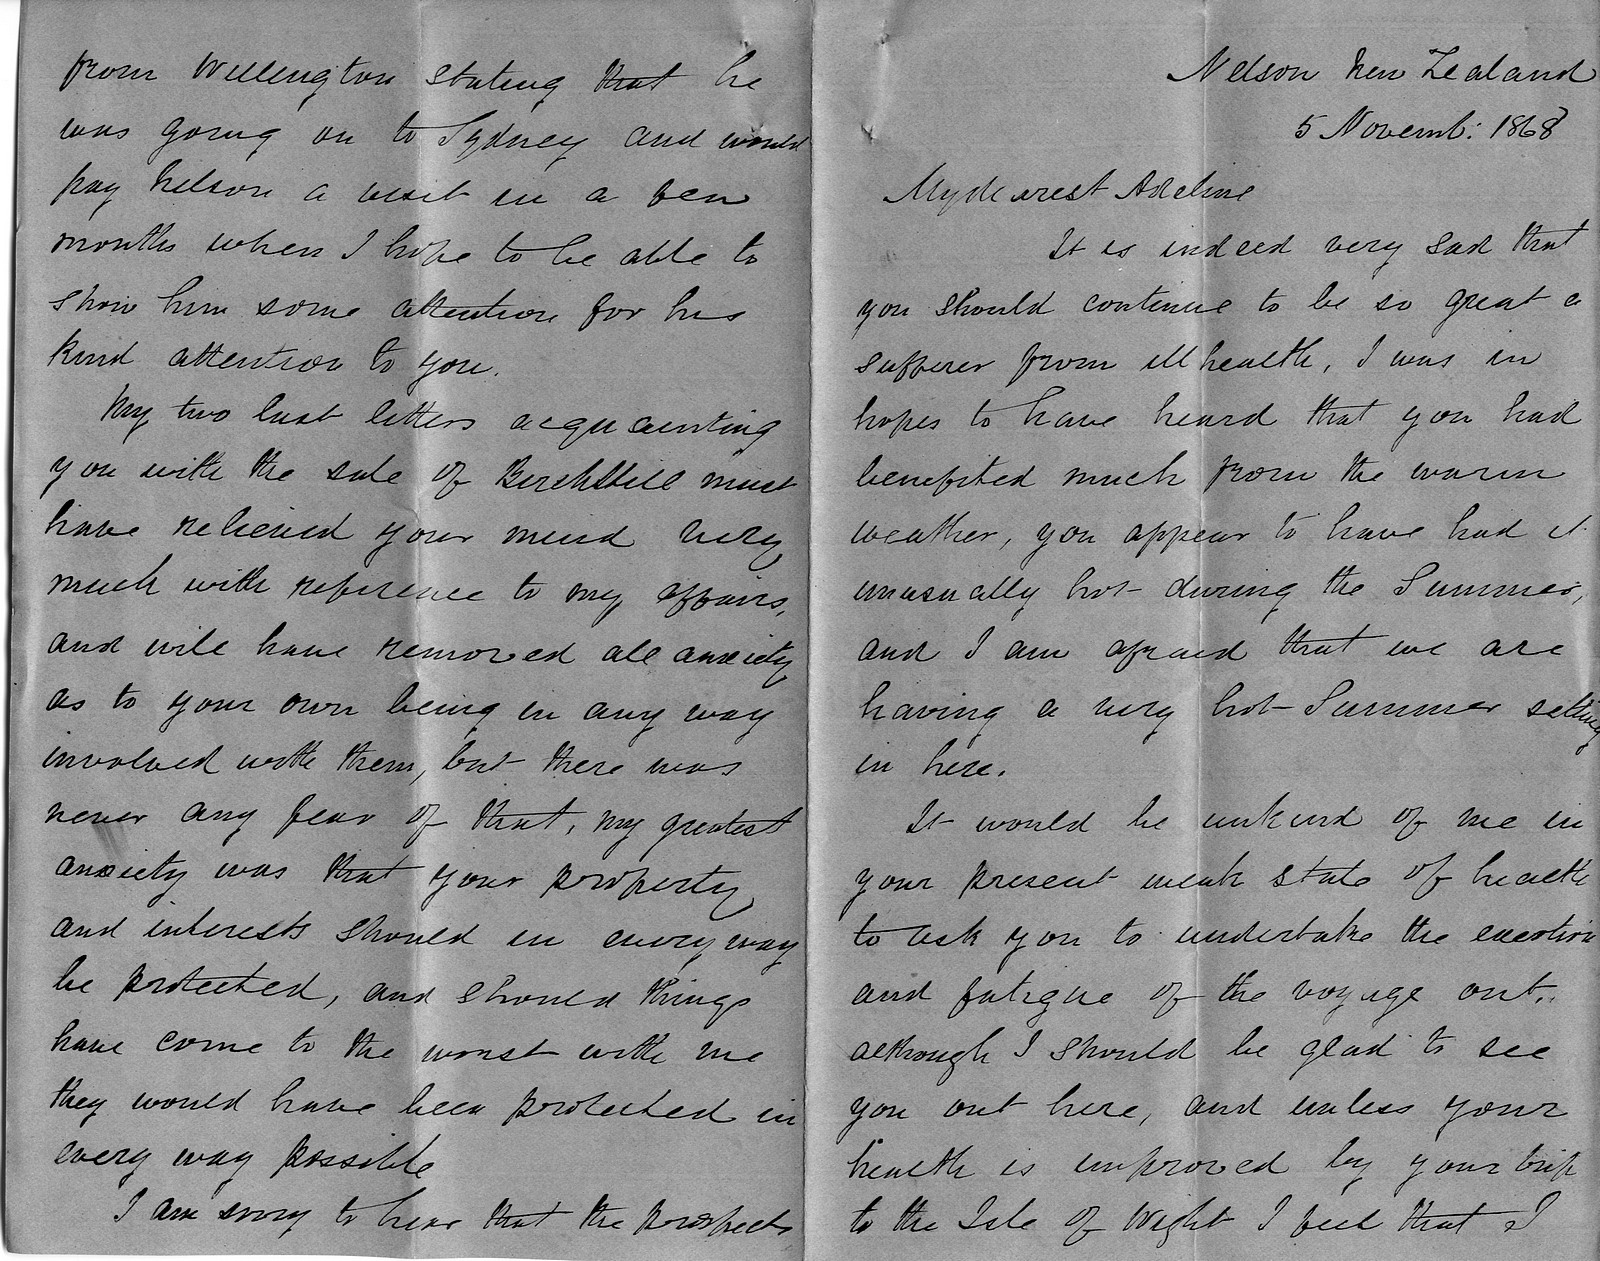 Nelson New Zealand
5 Novemb: 1868
My dearest Adeline
It is indeed very sad that
you should continue to be so great a
sufferer from ill health, I was in
hopes to have heard that you had
benefited much from the warm
weather, you appear to have had it
unusually hot during the Summer,
and I am afraid that we are
having a very hot Summer setting
in here.
It would be unkind of me in
your present weak state of health
to ask you to undertake the exertion
and fatigue of the voyage out,
although I should be glad to see
you out here, and unless your
health is improved by your trip
to the Isle of Wight I feel that I
from Wellington stating that he
was going on to Sydney and would
pay Nelson a visit in a few
months when I hope to be able to
show him some attention for his
kind attention to you.
My two last letters acquainting
you with the sale of Birchhill must
have relieved your mind very
much with reference to my affairs,
and will have removed all anxiety
as to your own being in any way
involved with them, but there was
never any fear of that, my greatest
anxiety was that your property
and interests should in every way
be protected, and should things
have come to the worst with me
they would have been protected in
every way possible
I am sorry to hear that the prospects